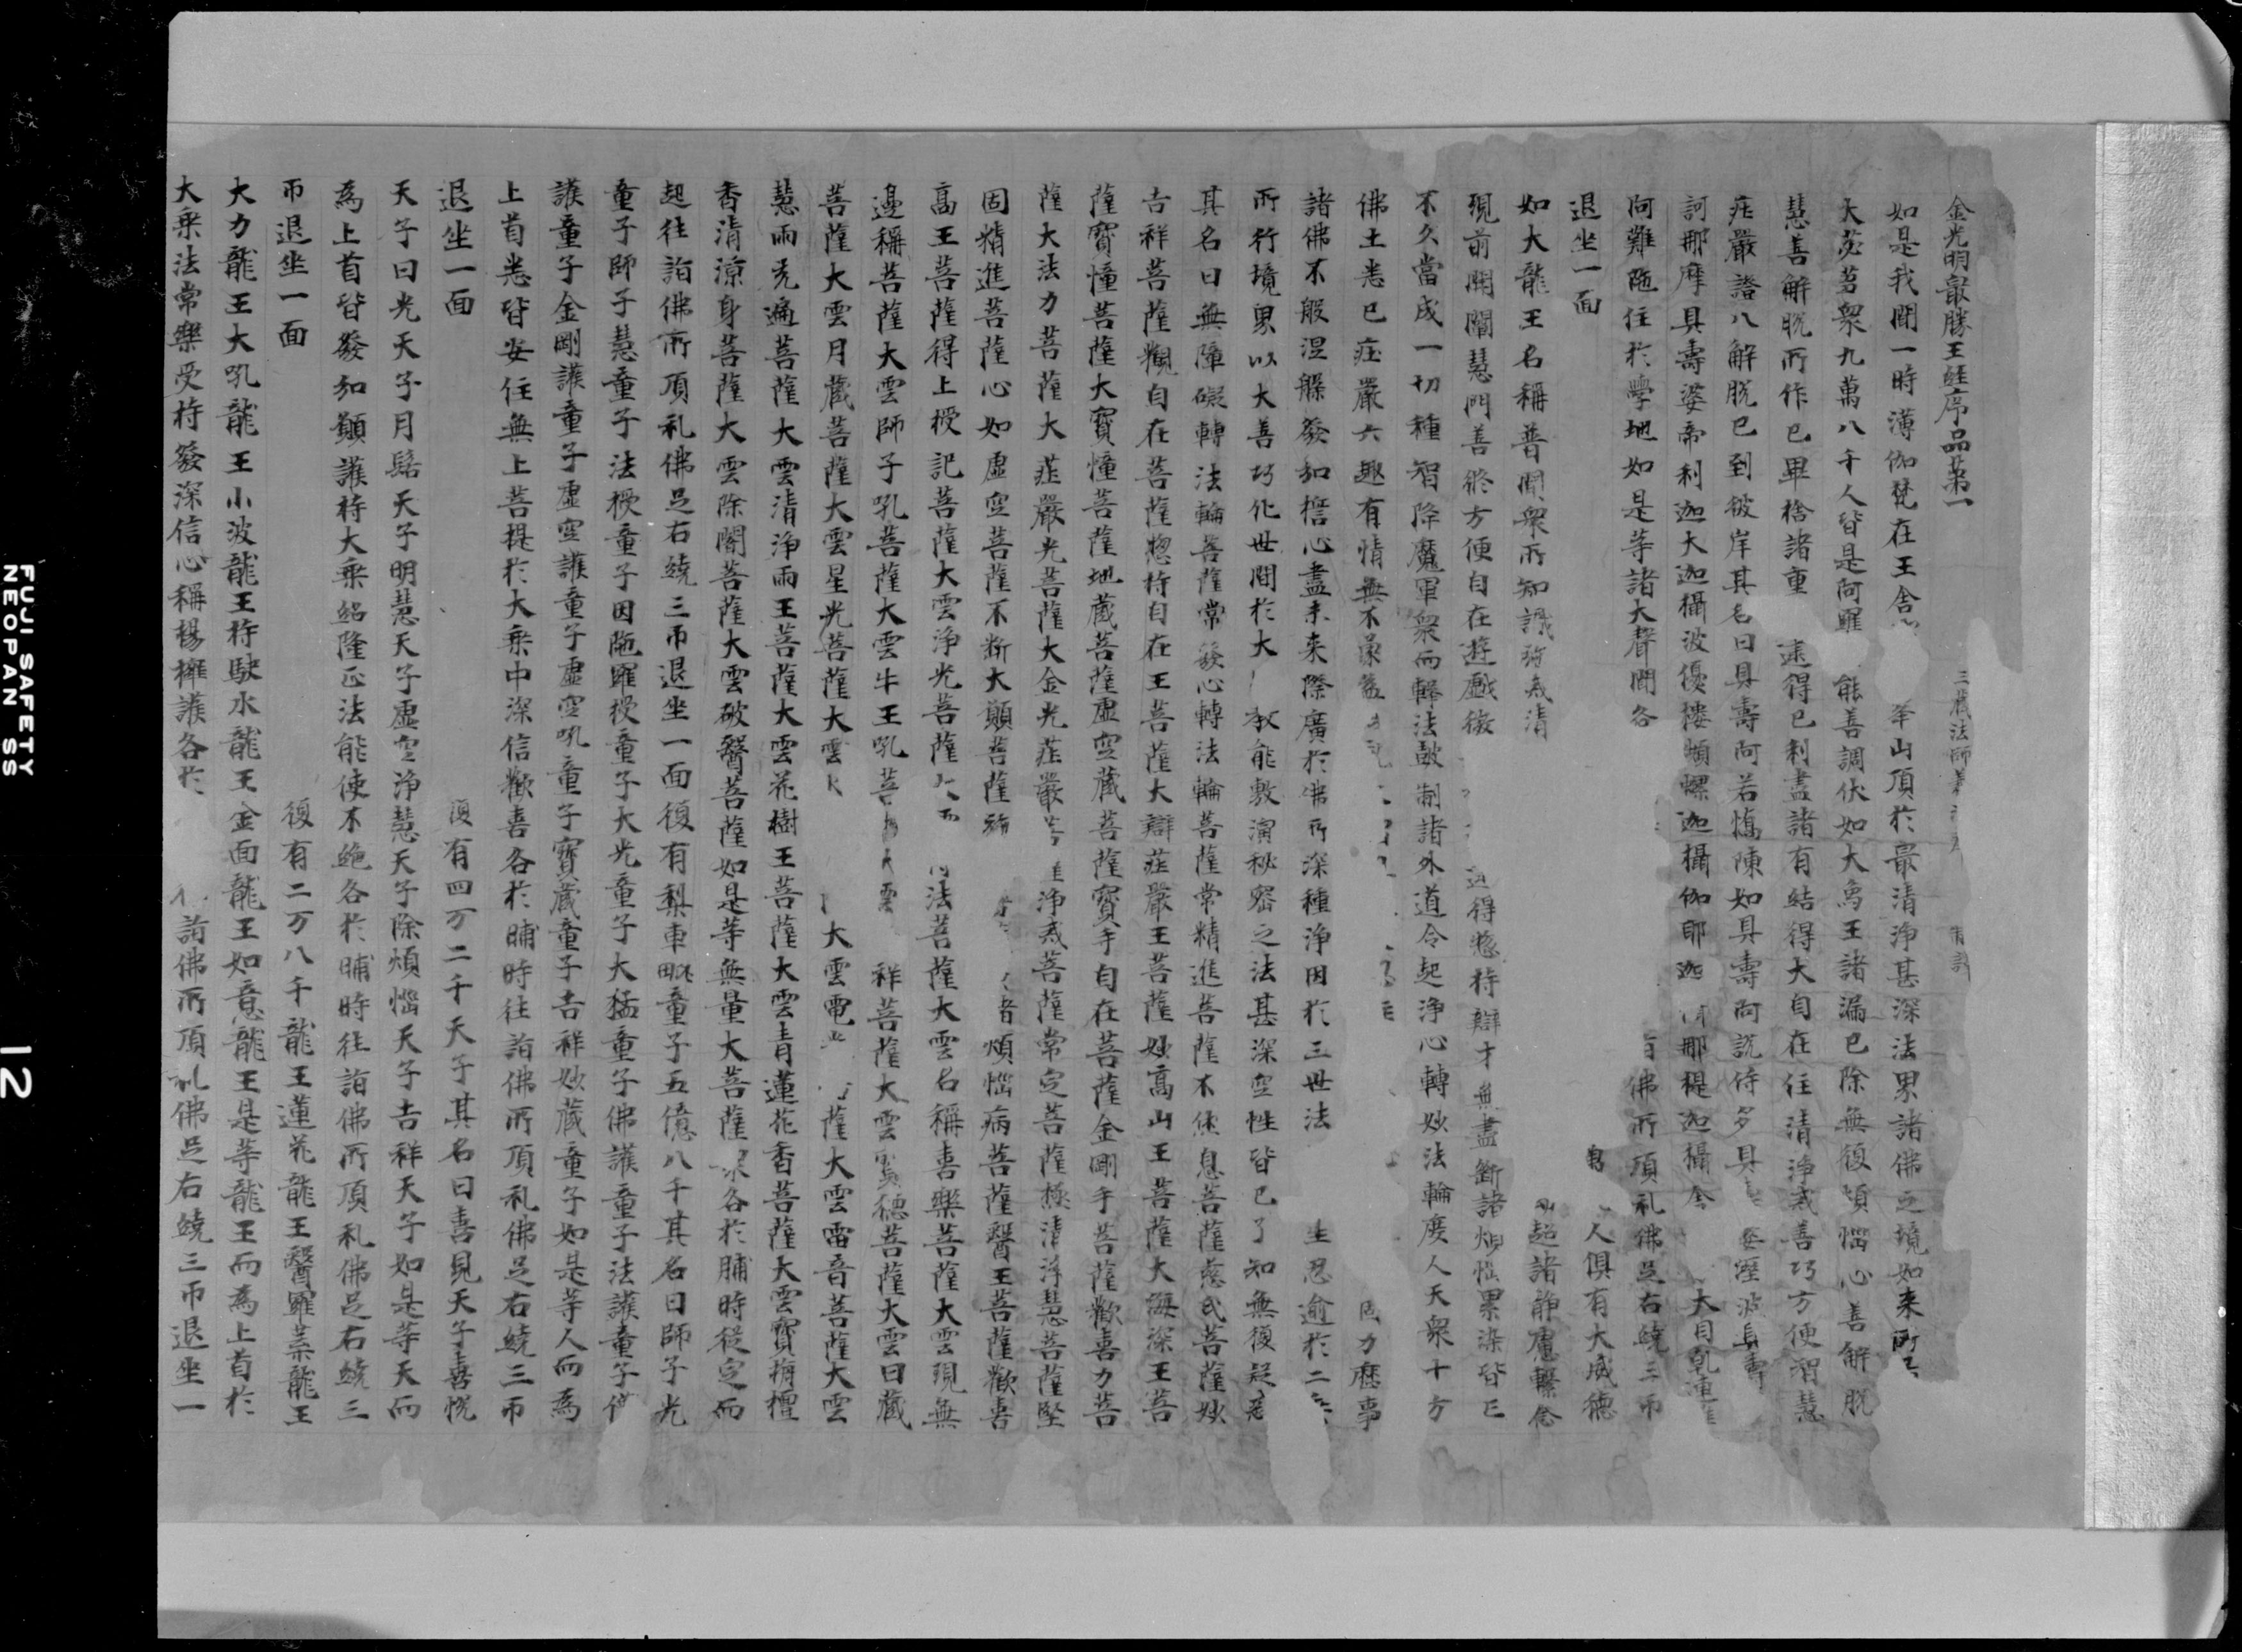 金光明最勝王經序品第一 三藏法師義
如是我聞一時薄伽梵在王舍 山頂於最清淨甚深法界諸佛之境如來所
大苾芻衆九萬八千人皆是阿羅 能善調伏如大象王諸漏已除無復煩惱心善解脫
慧善解脫所作已畢捨諸重 逮得已利盡諸有結得大自在住清淨戒善巧方便智慧
庄嚴證八解脫已到彼岸其名曰具壽阿若憍陳如具壽阿說侍多具 婆溼波具壽
訶那摩具壽婆帝利迦大迦攝波優樓頻螺迦攝伽耶迦 那提迦攝舍 大目乾連
阿難陁住於學地如是等諸大聲聞各 佛所頂礼佛足右繞三帀
退坐一面 人俱有大威德
如大龍王名稱普聞衆所知識 戒清 超諸靜慮繫念
現前開闡慧門善修方便自在遊戲微 得惣持辯才無盡斷諸煩惱累染皆已
不久當成一切種智降魔軍衆而轉法鼓制諸外道令起淨心轉妙法輪度人天衆十方
佛土悉已庄嚴六趣有情無不蒙益 力歷事
諸佛不般涅槃發加擔心盡未来際廣於佛所深種淨因於三世法 生忍逾於二
所行境界以大善巧化世間於大 教能敷演秘密之法甚深空性皆已了知無復疑
其名曰無障礙轉法輪菩薩常發心轉法輪菩薩常精進菩薩不休息菩薩慈氏菩薩妙
吉祥菩薩觀自在菩薩惣持自在王菩薩大辯莊嚴王菩薩妙高山王菩薩大海深王菩
薩寶幢菩薩大寶幢菩薩地藏菩薩虛空藏菩薩寶手自在菩薩金剛手菩薩歡喜力菩
薩大法力菩薩大莊嚴光菩薩大金光莊嚴 淨戒菩薩常定菩薩極清淨慧菩薩堅
固精進菩薩心如虛空菩薩不斷大願菩薩 煩惱病菩薩醫王菩薩歡喜
高王菩薩得上授記菩薩大雲淨光菩薩 法菩薩大雲名稱喜樂菩薩大雲現無
邊稱菩薩大雲師子吼菩薩大雲牛王吼菩 祥菩薩大雲寶德菩薩大雲日藏
菩薩大雲月藏菩薩大雲星光菩薩大雲 大雲電 薩大雲雷音菩薩大雲
慧雨充遍菩薩大雲清淨雨王菩薩大雲花樹王菩薩大雲青蓮花香菩薩大雲寶栴檀
香清涼身菩薩大雲除闇菩薩大雲破翳菩薩如是等無量大菩薩 各於晡時從定而
起往詣佛所頂礼佛足右繞三帀退坐一面復有梨車毗童子五億八千其名曰師子光
童子師子慧童子法授童子因陁羅授童子大光童子大猛童子佛護童子法護童子
護童子金剛護童子虛空護童子虛空吼童子寶藏童子吉祥妙藏童子如是等人而為
上首悉皆安住無上菩提於大乘中深信歡喜各於晡時往詣佛所頂礼佛足右繞三帀
退坐一面 復有四万二千天子其名曰喜見天子喜悅
天子日光天子月髻天子明慧天子虛空淨慧天子除煩惱天子吉祥天子如是等天而
為上首皆發加願護持大乘紹隆正法能使不絶各於晡時往詣佛所頂礼佛足右繞三
帀退坐一面 復有二万八千龍王蓮花龍王醫羅葉龍王
大力龍王大吼龍王小波龍王持駛水龍王金面龍王如意龍王是等龍王而為上首於
大乘法常樂受持發深信心稱揚擁護各於 詣佛所頂礼佛足右繞三帀退坐一
FUJI SAFETY
NEOPAN SS
12